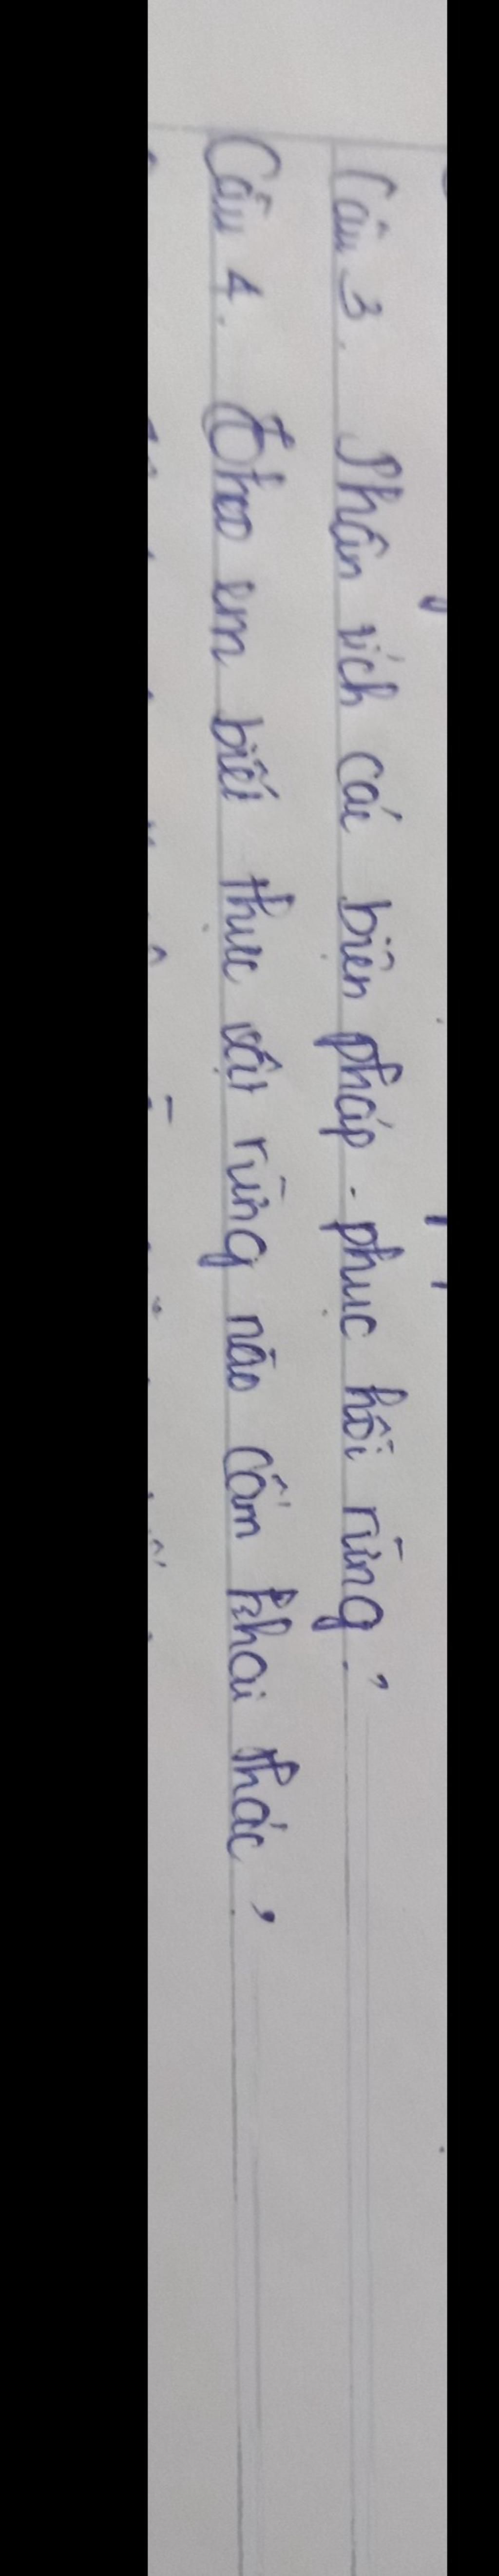 Câu 3. Phân tích các biện pháp phục hồi rừng?
Câu 4. Theo em biết thực vật rừng nào cấm khai thác?